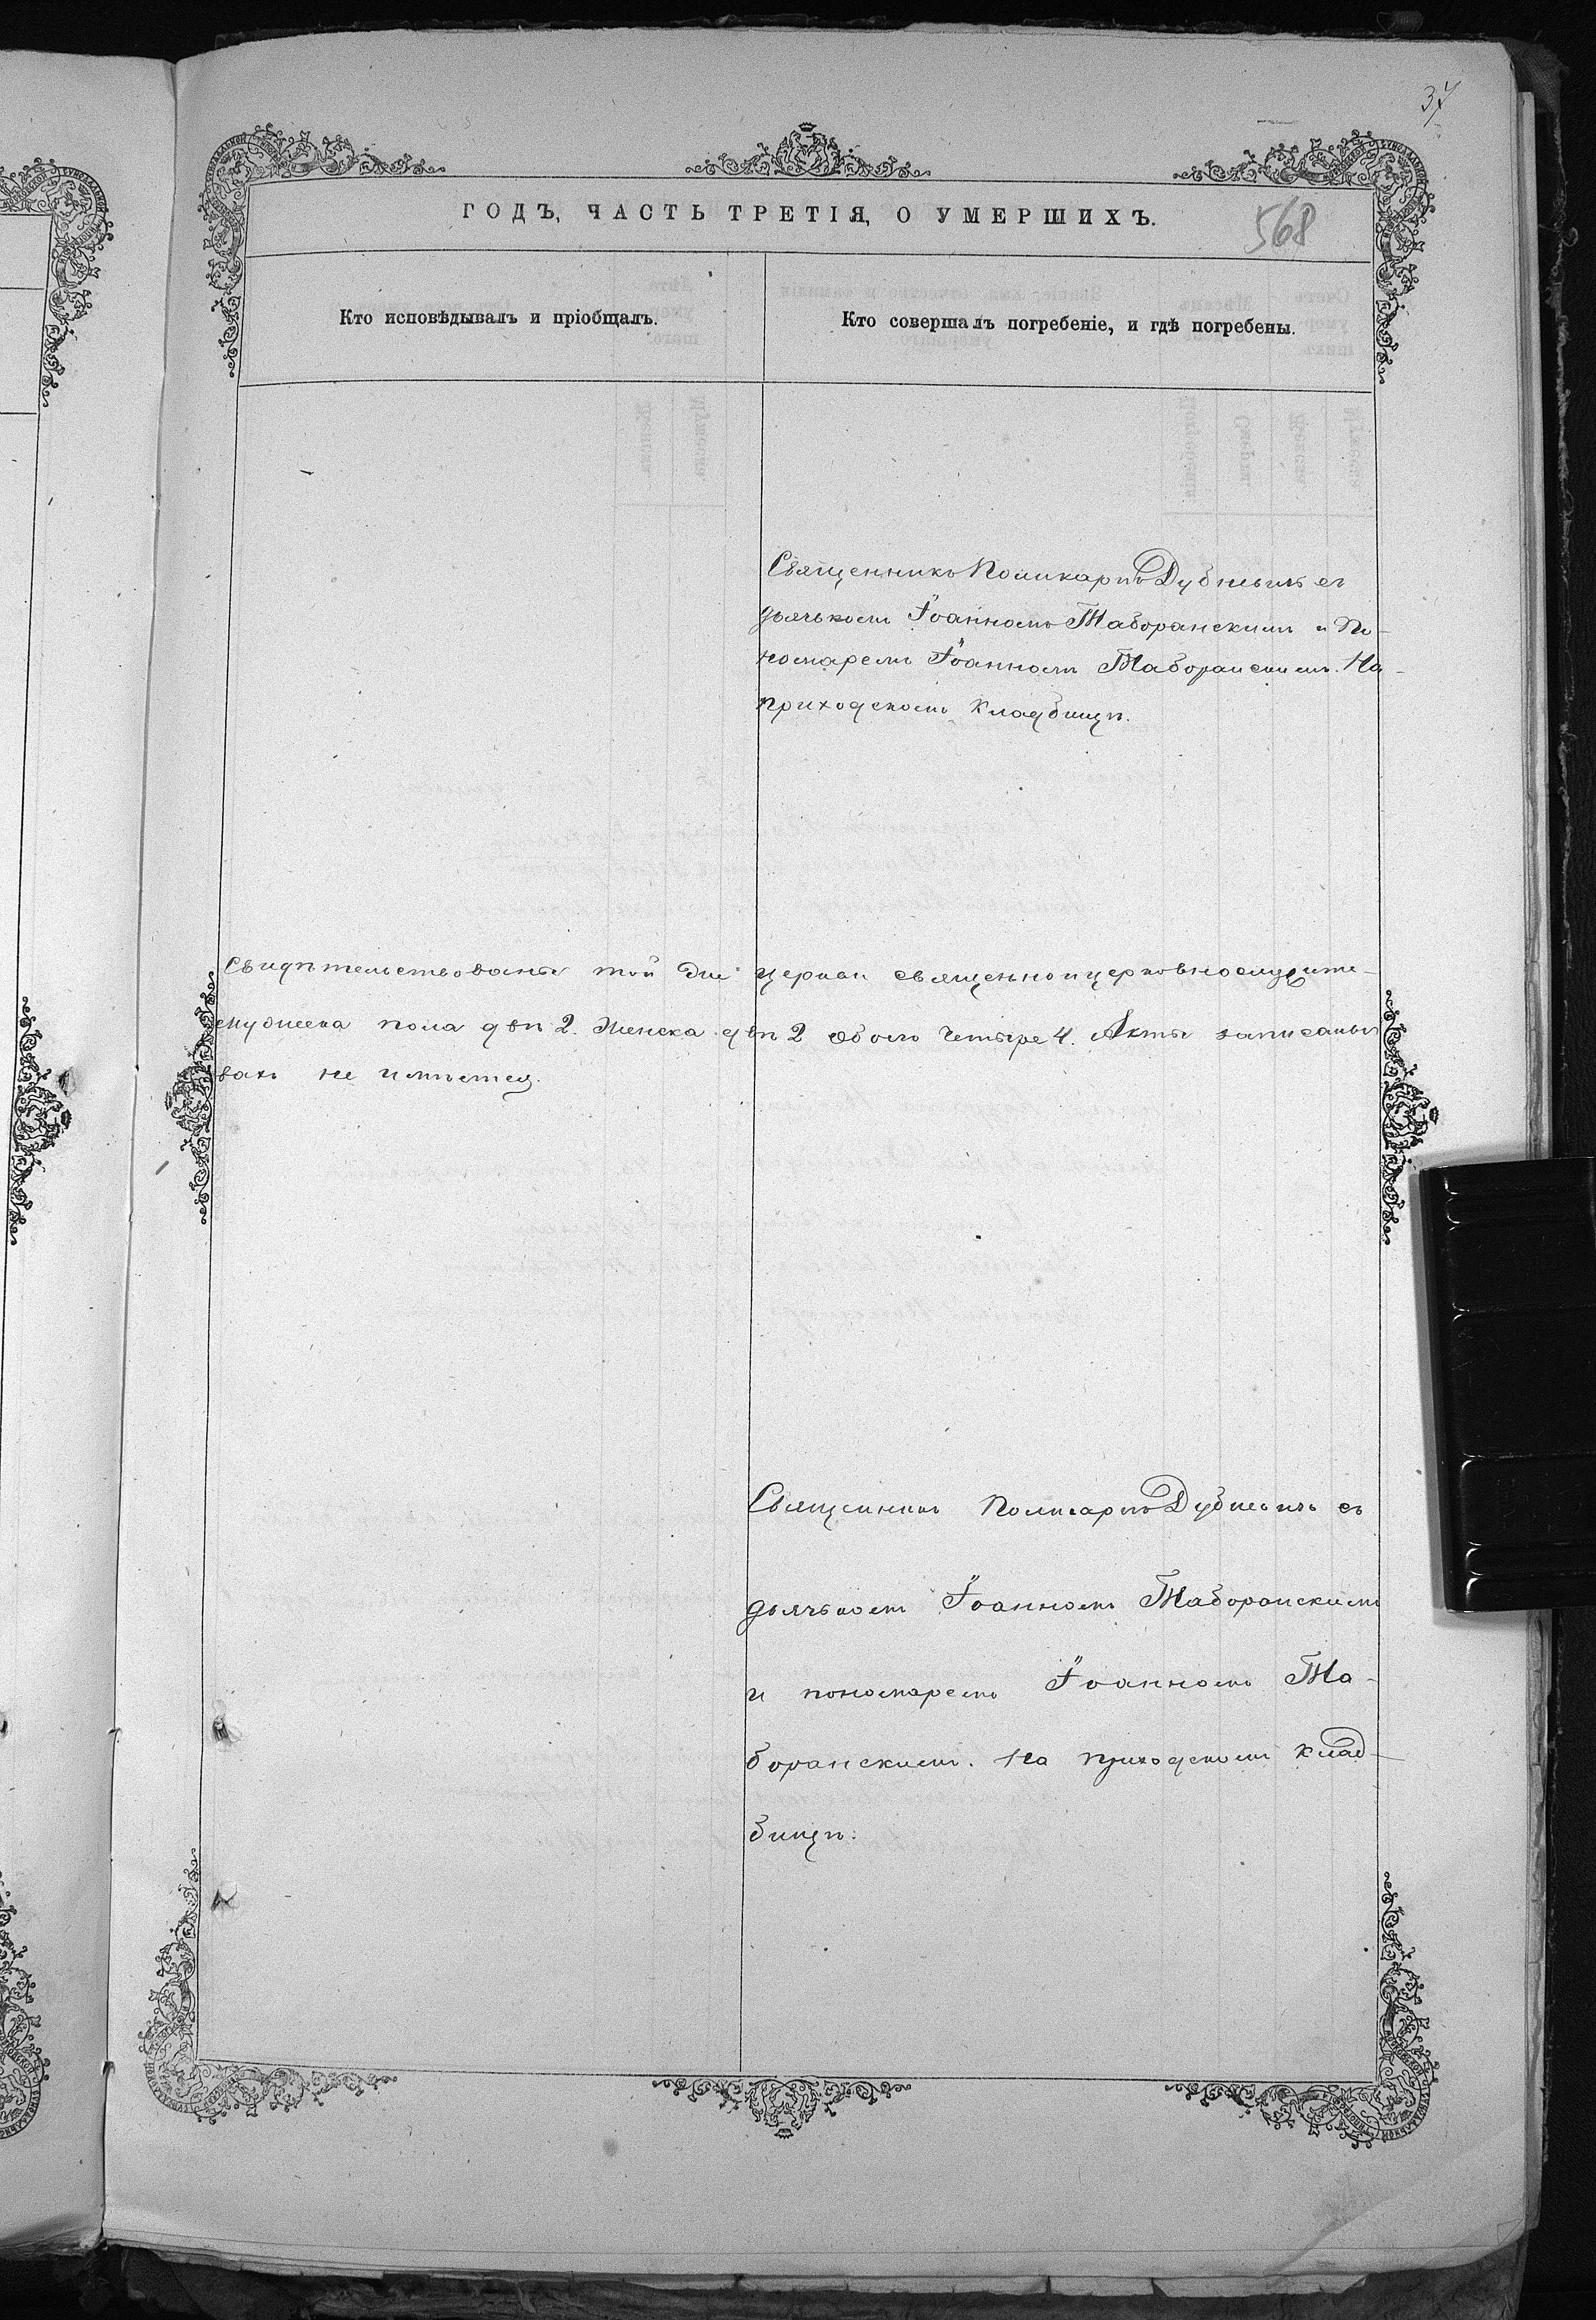 37
ГОДЪ, ЧАСТЬ ТРЕТІЯ, О УМЕРШИХЪ.
568
Кто исповѣдывалъ и пріобщалъ.
Кто совершалъ погребеніе, и гдѣ погребены.
Священникъ Поликарпъ Дубневичъ съ
дьячькомъ Іоанномъ Таборанскимъ и По-
номаремъ Іоанномъ Таборанскимъ. На
приходскомъ кладбищѣ.
Свидѣтельствованы той же церкви священноицерковнослужите-
мужеска пола двѣ 2. женска двѣ 2 обоего четыре 4. Акты записаны
вахъ не имѣется.
Священникъ Поликарпъ Дубневичъ съ
дьячькомъ Іоанномъ Таборанскимъ
и пономаремъ Іоанномъ Та-
боранскимъ. На приходскомъ клад-
бищѣ.